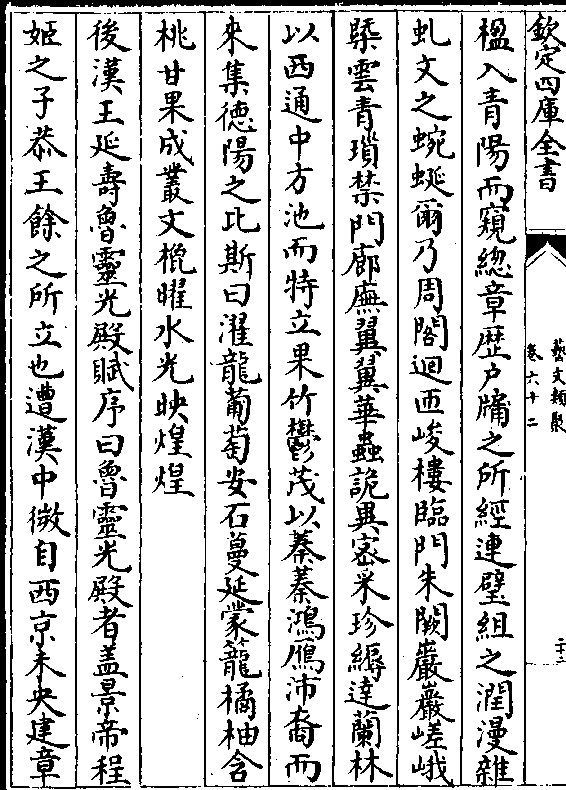 欽定四庫全書
藝文類聚
卷六十二
二十二
楹入青陽而窺緫章歴户牖之所經連璧組之潤漫雜
虬文之蜿蜒爾乃周閣迴匝峻樓臨門朱闕巖巖嵯峨
槩雲青瑣禁門廊廡翼翼華蟲詭異密采珍縟達蘭林
以西通中方池而特立果竹鬱茂以蓁蓁鴻鴈沛裔而
來集德陽之比斯曰濯龍葡萄安石蔓延蒙籠橘柚含
桃甘果成叢文㮰曜水光映煌煌
後漢王延壽魯靈光殿賦序曰魯靈光殿者盖景帝程
姬之子恭王餘之所立也遭漢中微自西京未央建章